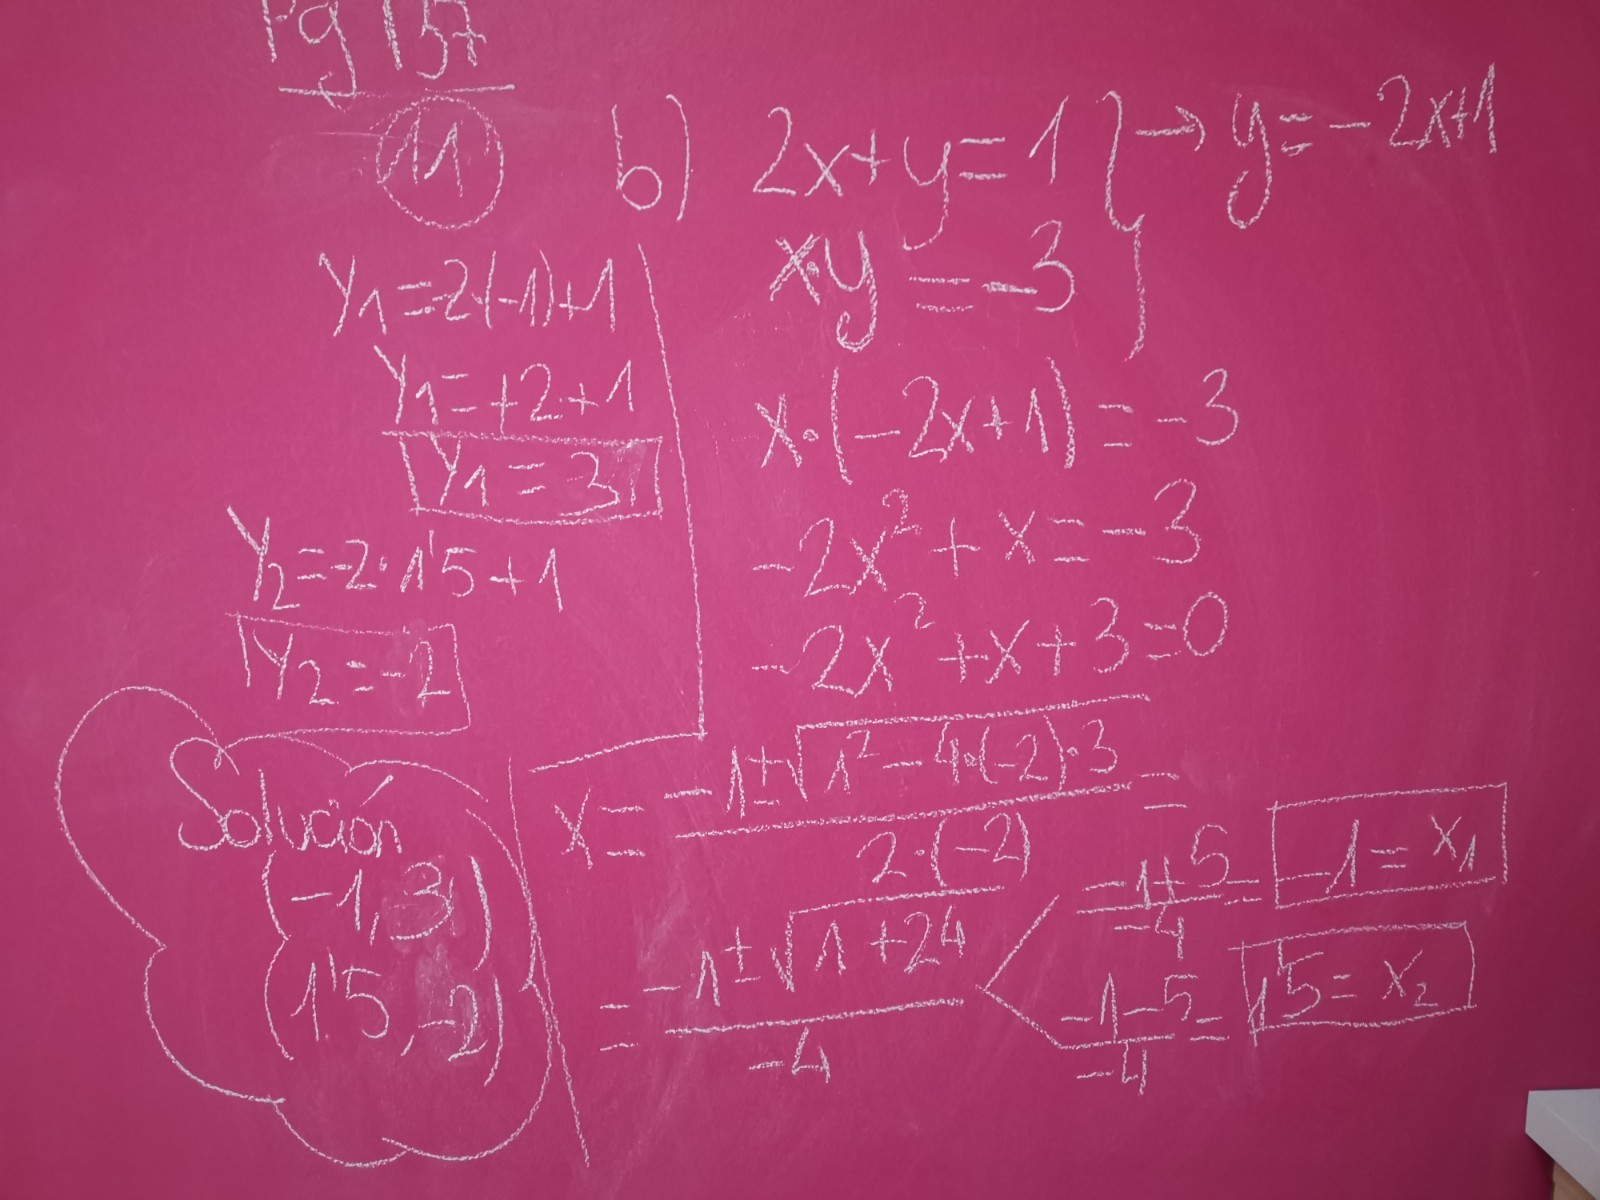 Pg 157
11
b) 2x+y=1 } → y=-2x+1
x·y=-3
x·(-2x+1)=-3
-2x²+x=-3
-2x²+x+3=0
x= -1±√1²-4·(-2)·3 / 2·(-2) =
= -1±√1+24 / -4
-1+5 / -4 = -1=x₁
-1-5 / -4 = 1'5=x₂
y₁=-2·(-1)+1
y₁=+2+1
y₁=3
y₂=-2·1'5+1
y₂=-2
Solución
(-1, 3)
(1'5, -2)